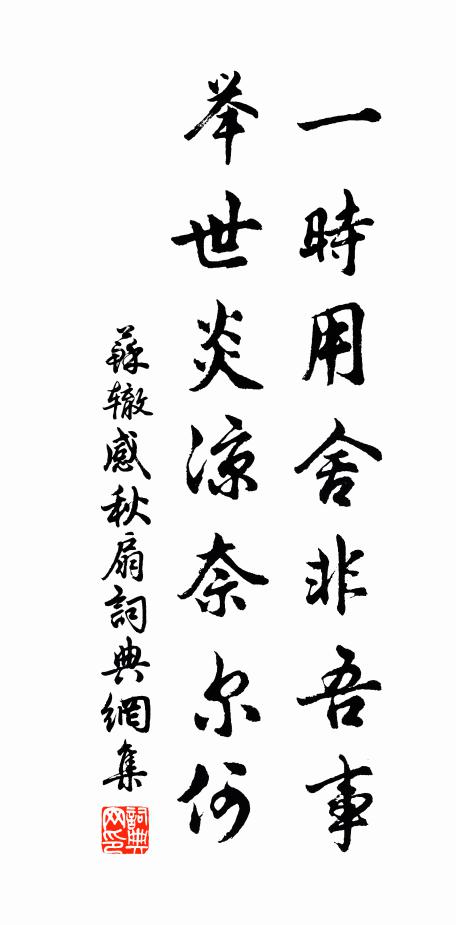 一時用舍非吾事
举世炎涼奈尔何
蘇辙感秋扇詞典網集
詞典
网印